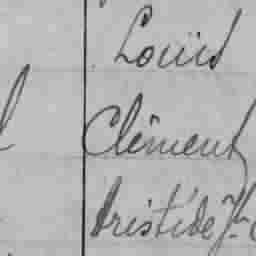 Louis
Clément
Aristide